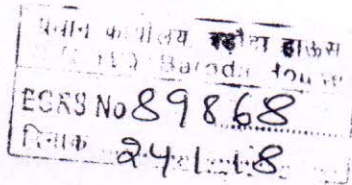 प्रधान कार्यालय बड़ौदा हाऊस
Baroda House
ECRS No 89868
दिनांक 24.1.18